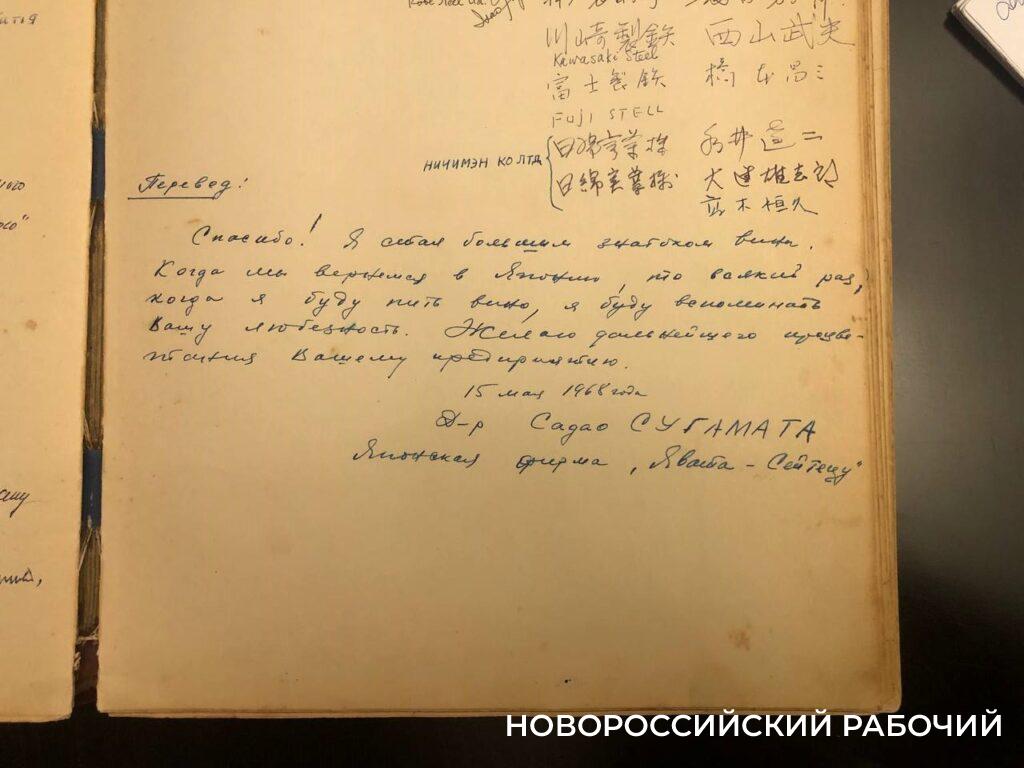 Kobe Steel Ltd.
川崎製鉄 西山武夫
Kawasaki Steel
富士製鉄 橋本昌三
FUJI STELL
日綿実業株
НИЧИМЭН КО ЛТД
日綿実業株 大道雄志郎
高木恒久
Перевед:
Спасибо! Я стал большим знатоком вина.
Когда мы вернемся в Японию, то всякий раз,
когда я буду пить вино, я буду вспоминать
Вашу любезность. Желаю дальнейшего процве-
тания Вашему предприятию.
15 мая 1968 года
Д-р Садао СУГАМАТА
Японская фирма „Явата - Сейтецу"
НОВОРОССИЙСКИЙ РАБОЧИЙ